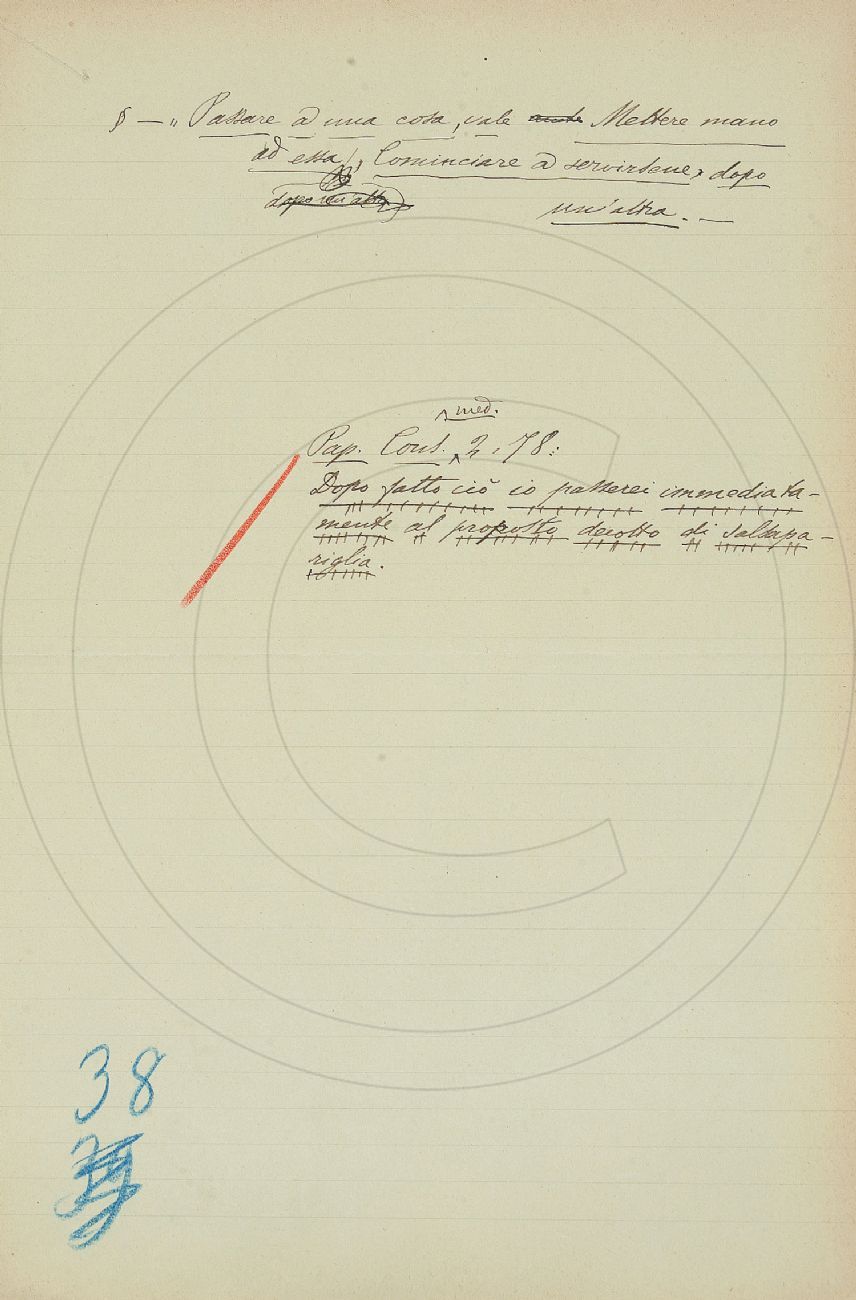 § — „ Passare a una cosa, vale anche Mettere mano
ad essa, Cominciare a servirsene, dopo
dopo un'altra
un'altra. —
med.
Pap. Cons. 2, 78:
Dopo fatto ciò io passerei immediata-
mente al proposto decotto di salsapa-
riglia.
38